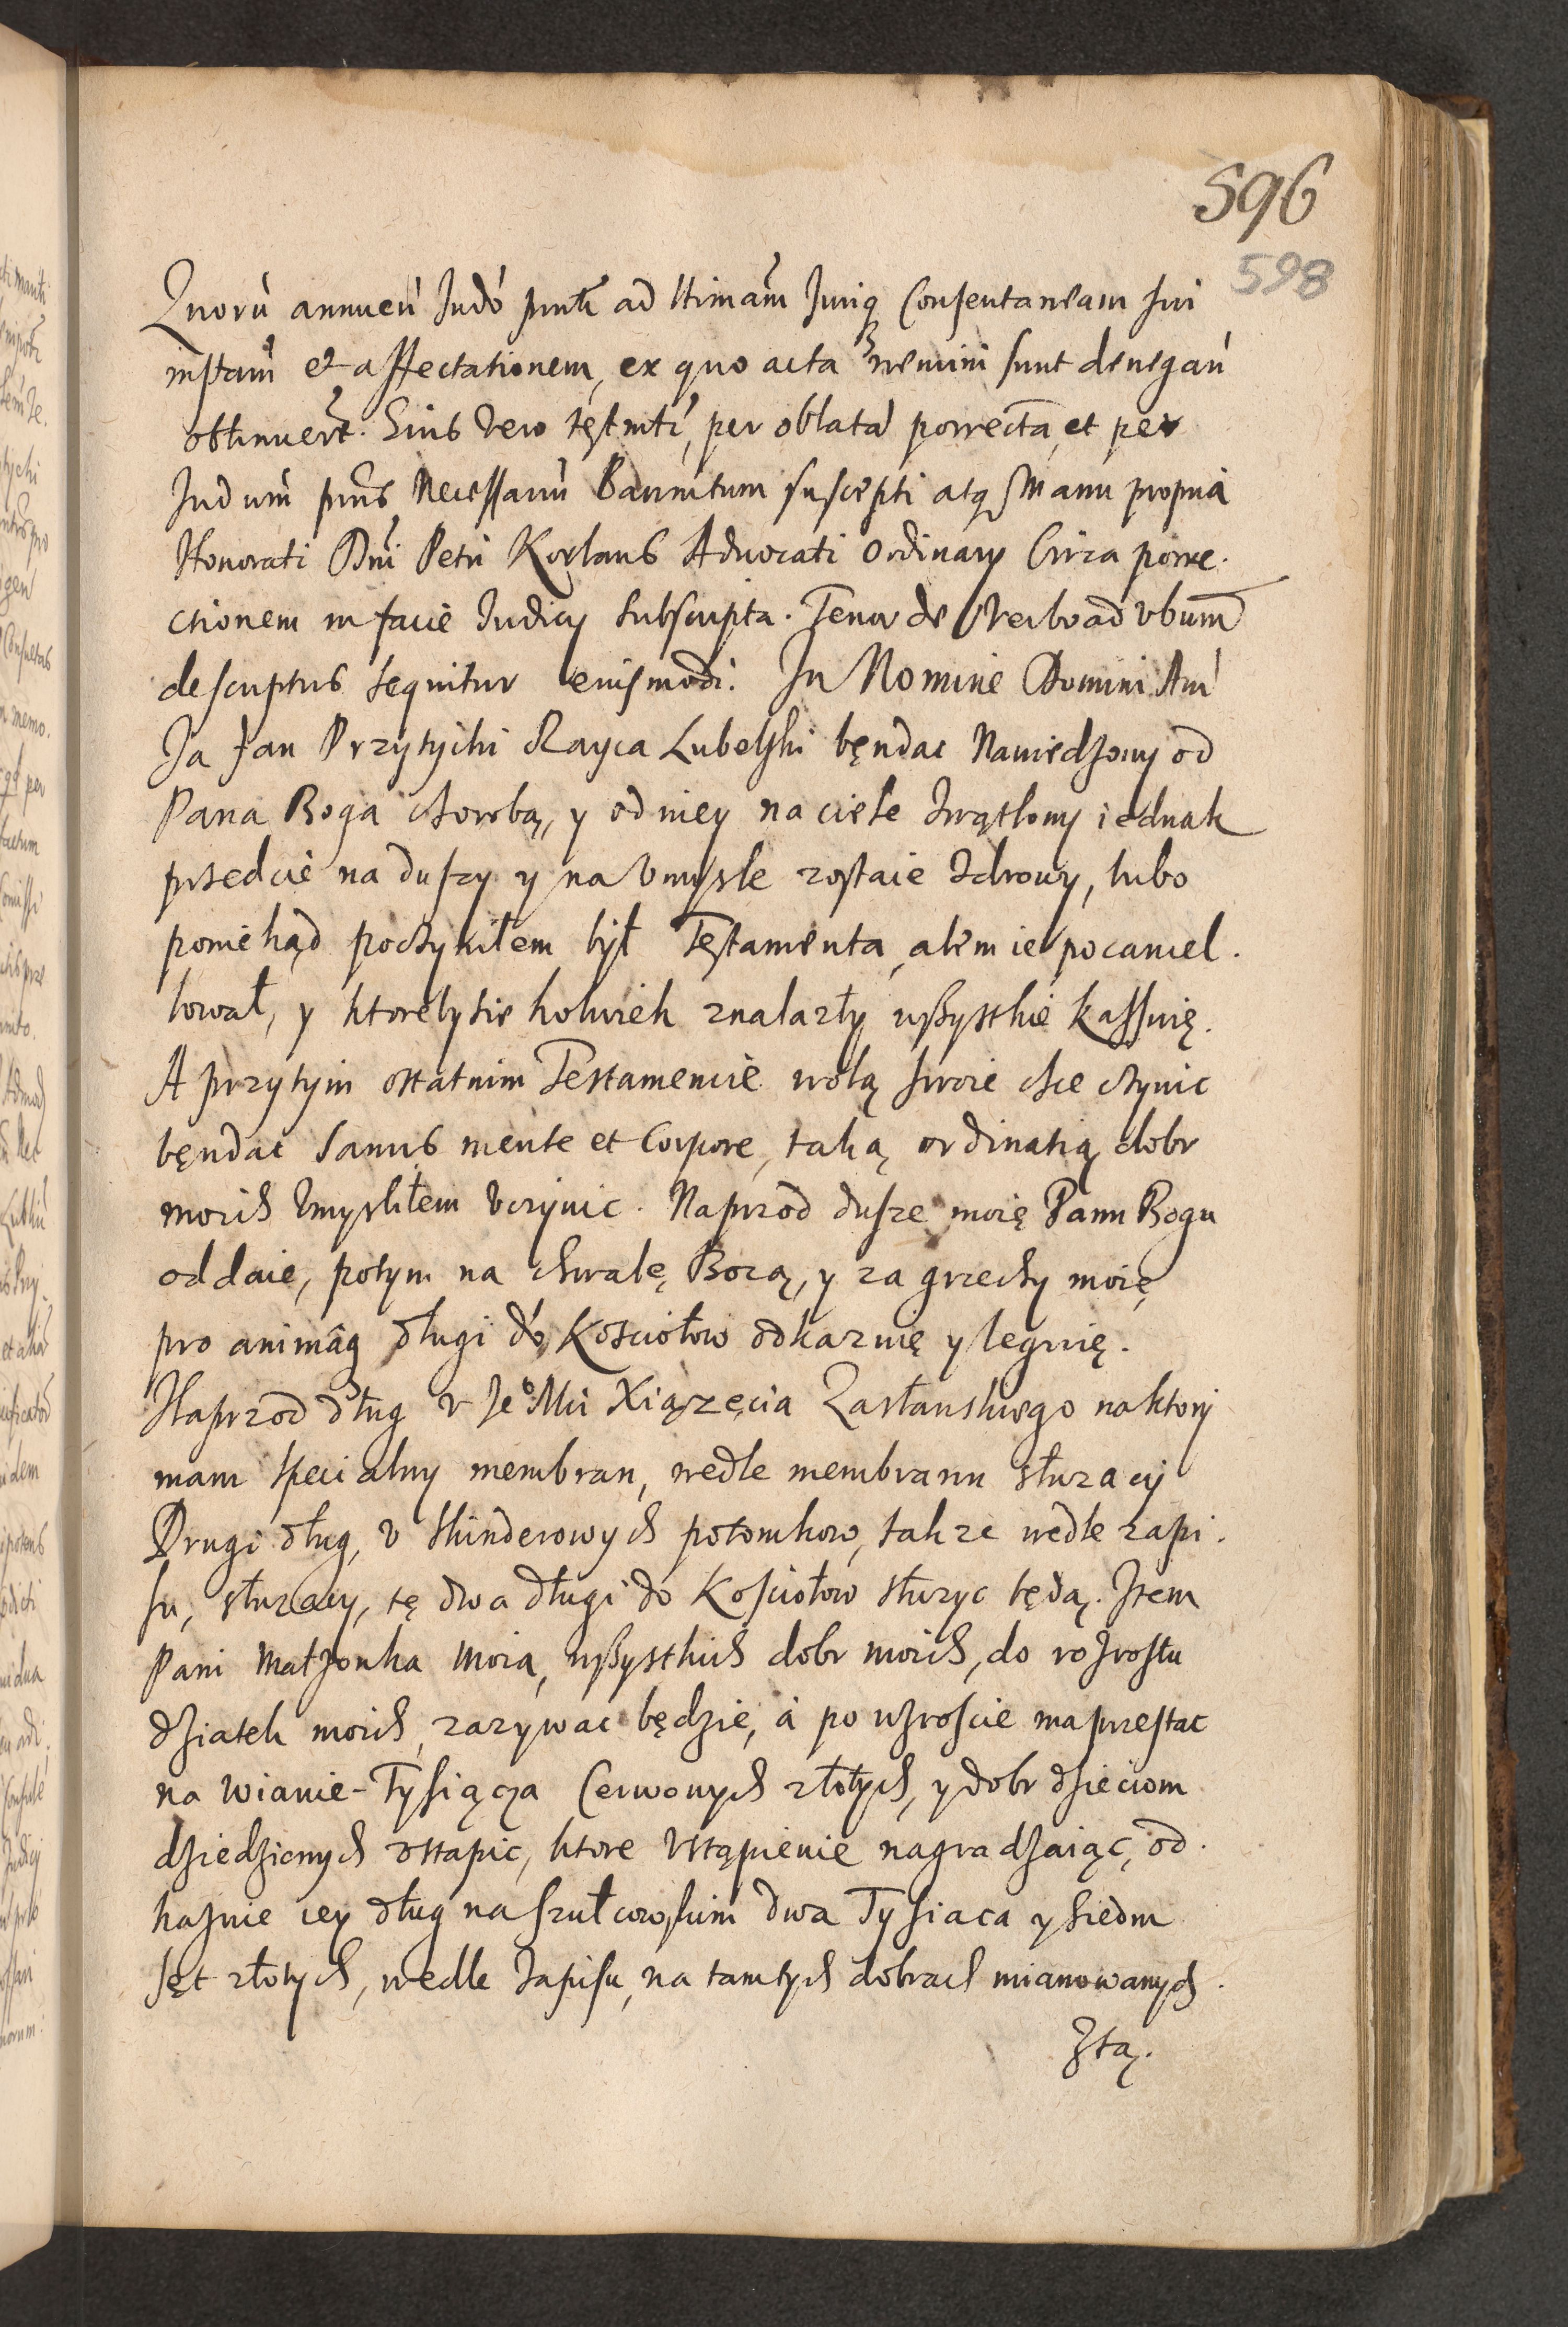 596
598
Quorũ annueũ Judó pñti ad ltimam Juriq Consentaneam sui
instam et affectationem, ex quo acta nemini sunt denegañ
obtinuert. Eius vero testmti, per oblatã porrecta et per
Judum prus Necessariũ Bannitum suscepti atq Manu propria
Honorati Dni Petri Korlans Advocati Ordinary Circa porre.
ctionem in facie Judicy subscripta. Tenor de Verbo ad vbum
descriptus sequitur eiusmodi. In Nomine Domini Am
Ja Jan Przytycki Rayca Lubelski będac Nawiedzony od
Pana Boga chorobą, y od niey na ciele zwątlony iednak
przedcie na duszy y na Vmysle zostaie zdrowy, lubo
poniekąd poczyniłem był Testamenta, alem ie pocancel.
lował, y ktorebysie kolwiek znalazły wszystkie kassuię.
A przytym ostatnim Testamencie wolą swoie chce czynic
będac sanus mente et Corpore, taką ordinatią dobr
moich Vmyslilem Vczynic. Naprzod dusze moię Panu Bogu
oddaie, potym na chwałę Bozą, y za grzechy moię
pro animag długi do Kosciołow odkazuię y leguię.
Naprzod dług v Je⁰ Mci Xiązęcia Zasławskiego na ktory
mam specialny membran, wedle membranu słuzacy
Drugi dług, v Skinderowych potomkow, takze wedle zapi.
su, słuzacy, tę dwa długi do Kosciołow słuzyc będą. Item
Pani Małzonka moia, wszystkich dobr moich, do rozrostu
dziatek moich, zazywac będzie, á po wzroscie ma przestac
na wianie Tysiącza Cerwonych złotych, y dobr dzieciom
dziedzicnych ostapic, ktore Vstąpienie nagradzaiąc, od.
kazuie iey dług na Szułcowskim dwa Tysiaca y siedm
set złotych, wedle Zapisu, na tamtych dobrach mianowanych.
Ztą.